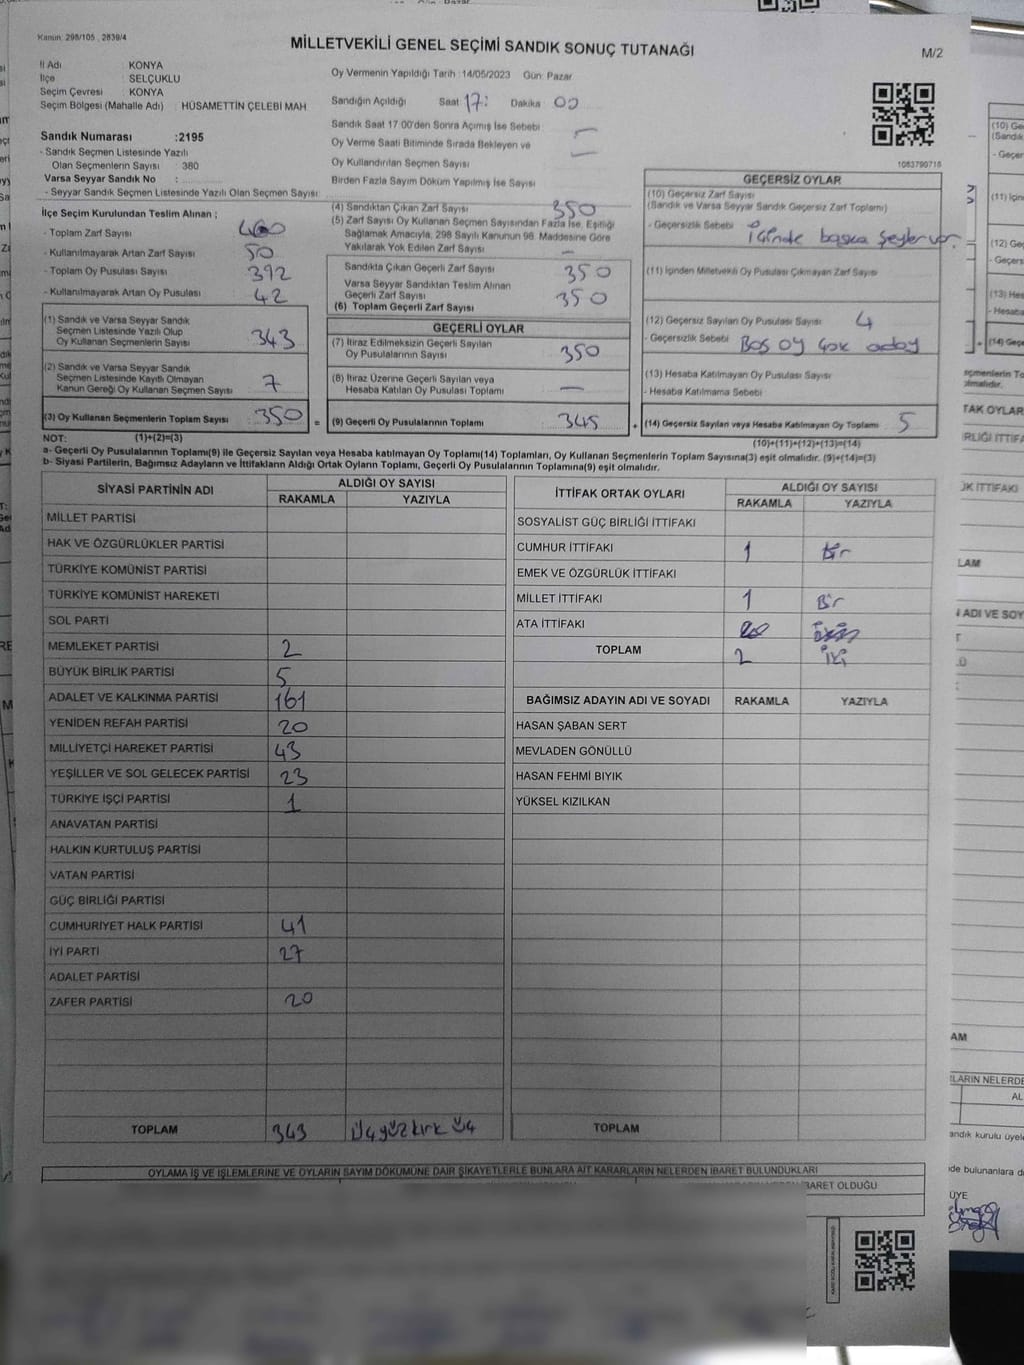 Kanun: 298/105 , 2839/4
MİLLETVEKİLİ GENEL SEÇİMİ SANDIK SONUÇ TUTANAĞI
M/2
İl Adı : KONYA
İlçe : SELÇUKLU
Seçim Çevresi : KONYA
Seçim Bölgesi (Mahalle Adı) : HÜSAMETTİN ÇELEBİ MAH
Sandık Numarası :2195
- Sandık Seçmen Listesinde Yazılı
Olan Seçmenlerin Sayısı : 380
Varsa Seyyar Sandık No :
- Seyyar Sandık Seçmen Listesinde Yazılı Olan Seçmen Sayısı:
Oy Vermenin Yapıldığı Tarih :14/05/2023 Gün: Pazar
Sandığın Açıldığı Saat 17: Dakika 00
Sandık Saat 17:00'den Sonra Açımış İse Sebebi
Oy Verme Saati Bitiminde Sırada Bekleyen ve
Oy Kullandırılan Seçmen Sayısı
Birden Fazla Sayım Döküm Yapılmış İse Sayısı
1083790716
İlçe Seçim Kurulundan Teslim Alınan ;
- Toplam Zarf Sayısı 400
- Kullanılmayarak Artan Zarf Sayısı 50
- Toplam Oy Pusulası Sayısı 392
- Kullanılmayarak Artan Oy Pusulası 42
(1) Sandık ve Varsa Seyyar Sandık
Seçmen Listesinde Yazılı Olup
Oy Kullanan Seçmenlerin Sayısı 343
(2) Sandık ve Varsa Seyyar Sandık
Seçmen Listesinde Kayıtlı Olmayan
Kanun Gereği Oy Kullanan Seçmen Sayısı 7
(3) Oy Kullanan Seçmenlerin Toplam Sayısı 350 =
(4) Sandıktan Çıkan Zarf Sayısı 350
(5) Zarf Sayısı Oy Kullanan Seçmen Sayısından Fazla İse, Eşitliği
Sağlamak Amacıyla, 298 Sayılı Kanunun 98. Maddesine Göre
Yakılarak Yok Edilen Zarf Sayısı -
Sandıkta Çıkan Geçerli Zarf Sayısı 350
Varsa Seyyar Sandıktan Teslim Alınan
Geçerli Zarf Sayısı 350
(6) Toplam Geçerli Zarf Sayısı
GEÇERLİ OYLAR
(7) İtiraz Edilmeksizin Geçerli Sayılan
Oy Pusulalarının Sayısı 350
(8) İtiraz Üzerine Geçerli Sayılan veya
Hesaba Katılan Oy Pusulası Toplamı -
(9) Geçerli Oy Pusulalarının Toplamı 345 +
GEÇERSİZ OYLAR
(10) Geçersiz Zarf Sayısı
(Sandık ve Varsa Seyyar Sandık Geçersiz Zarf Toplamı)
- Geçersizlik Sebebi içinde başka şeyler var.
(11) İçinden Milletvekili Oy Pusulası Çıkmayan Zarf Sayısı
(12) Geçersiz Sayılan Oy Pusulası Sayısı 4
- Geçersizlik Sebebi Boş oy çok aday
(13) Hesaba Katılmayan Oy Pusulası Sayısı
- Hesaba Katılmama Sebebi
(14) Geçersiz Sayılan veya Hesaba Katılmayan Oy Toplamı 5
NOT: (1)+(2)=(3) (10)+(11)+(12)+(13)=(14)
a- Geçerli Oy Pusulalarının Toplamı(9) ile Geçersiz Sayılan veya Hesaba katılmayan Oy Toplamı(14) Toplamları, Oy Kullanan Seçmenlerin Toplam Sayısına(3) eşit olmalıdır. (9)+(14)=(3)
b- Siyasi Partilerin, Bağımsız Adayların ve İttifakların Aldığı Ortak Oyların Toplamı, Geçerli Oy Pusulalarının Toplamına(9) eşit olmalıdır.
SİYASİ PARTİNİN ADI ALDIĞI OY SAYISI
RAKAMLA YAZIYLA
MİLLET PARTİSİ
HAK VE ÖZGÜRLÜKLER PARTİSİ
TÜRKİYE KOMÜNİST PARTİSİ
TÜRKİYE KOMÜNİST HAREKETİ
SOL PARTİ
MEMLEKET PARTİSİ 2
BÜYÜK BİRLİK PARTİSİ 5
ADALET VE KALKINMA PARTİSİ 161
YENİDEN REFAH PARTİSİ 20
MİLLİYETÇİ HAREKET PARTİSİ 43
YEŞİLLER VE SOL GELECEK PARTİSİ 23
TÜRKİYE İŞÇİ PARTİSİ 1
ANAVATAN PARTİSİ
HALKIN KURTULUŞ PARTİSİ
VATAN PARTİSİ
GÜÇ BİRLİĞİ PARTİSİ
CUMHURİYET HALK PARTİSİ 41
İYİ PARTİ 27
ADALET PARTİSİ
ZAFER PARTİSİ 20
TOPLAM 343 Üçyüz kırk üç
İTTİFAK ORTAK OYLARI ALDIĞI OY SAYISI
RAKAMLA YAZIYLA
SOSYALİST GÜÇ BİRLİĞİ İTTİFAKI
CUMHUR İTTİFAKI 1 Bir
EMEK VE ÖZGÜRLÜK İTTİFAKI
MİLLET İTTİFAKI 1 Bir
ATA İTTİFAKI
TOPLAM 2 iki
BAĞIMSIZ ADAYIN ADI VE SOYADI RAKAMLA YAZIYLA
HASAN ŞABAN SERT
MEVLADEN GÖNÜLLÜ
HASAN FEHMİ BIYIK
YÜKSEL KIZILKAN
TOPLAM
OYLAMA İŞ VE İŞLEMLERİNE VE OYLARIN SAYIM DÖKÜMÜNE DAİR ŞİKAYETLERLE BUNLARA AİT KARARLARIN NELERDEN İBARET BULUNDUKLARI
BARET OLDUĞU